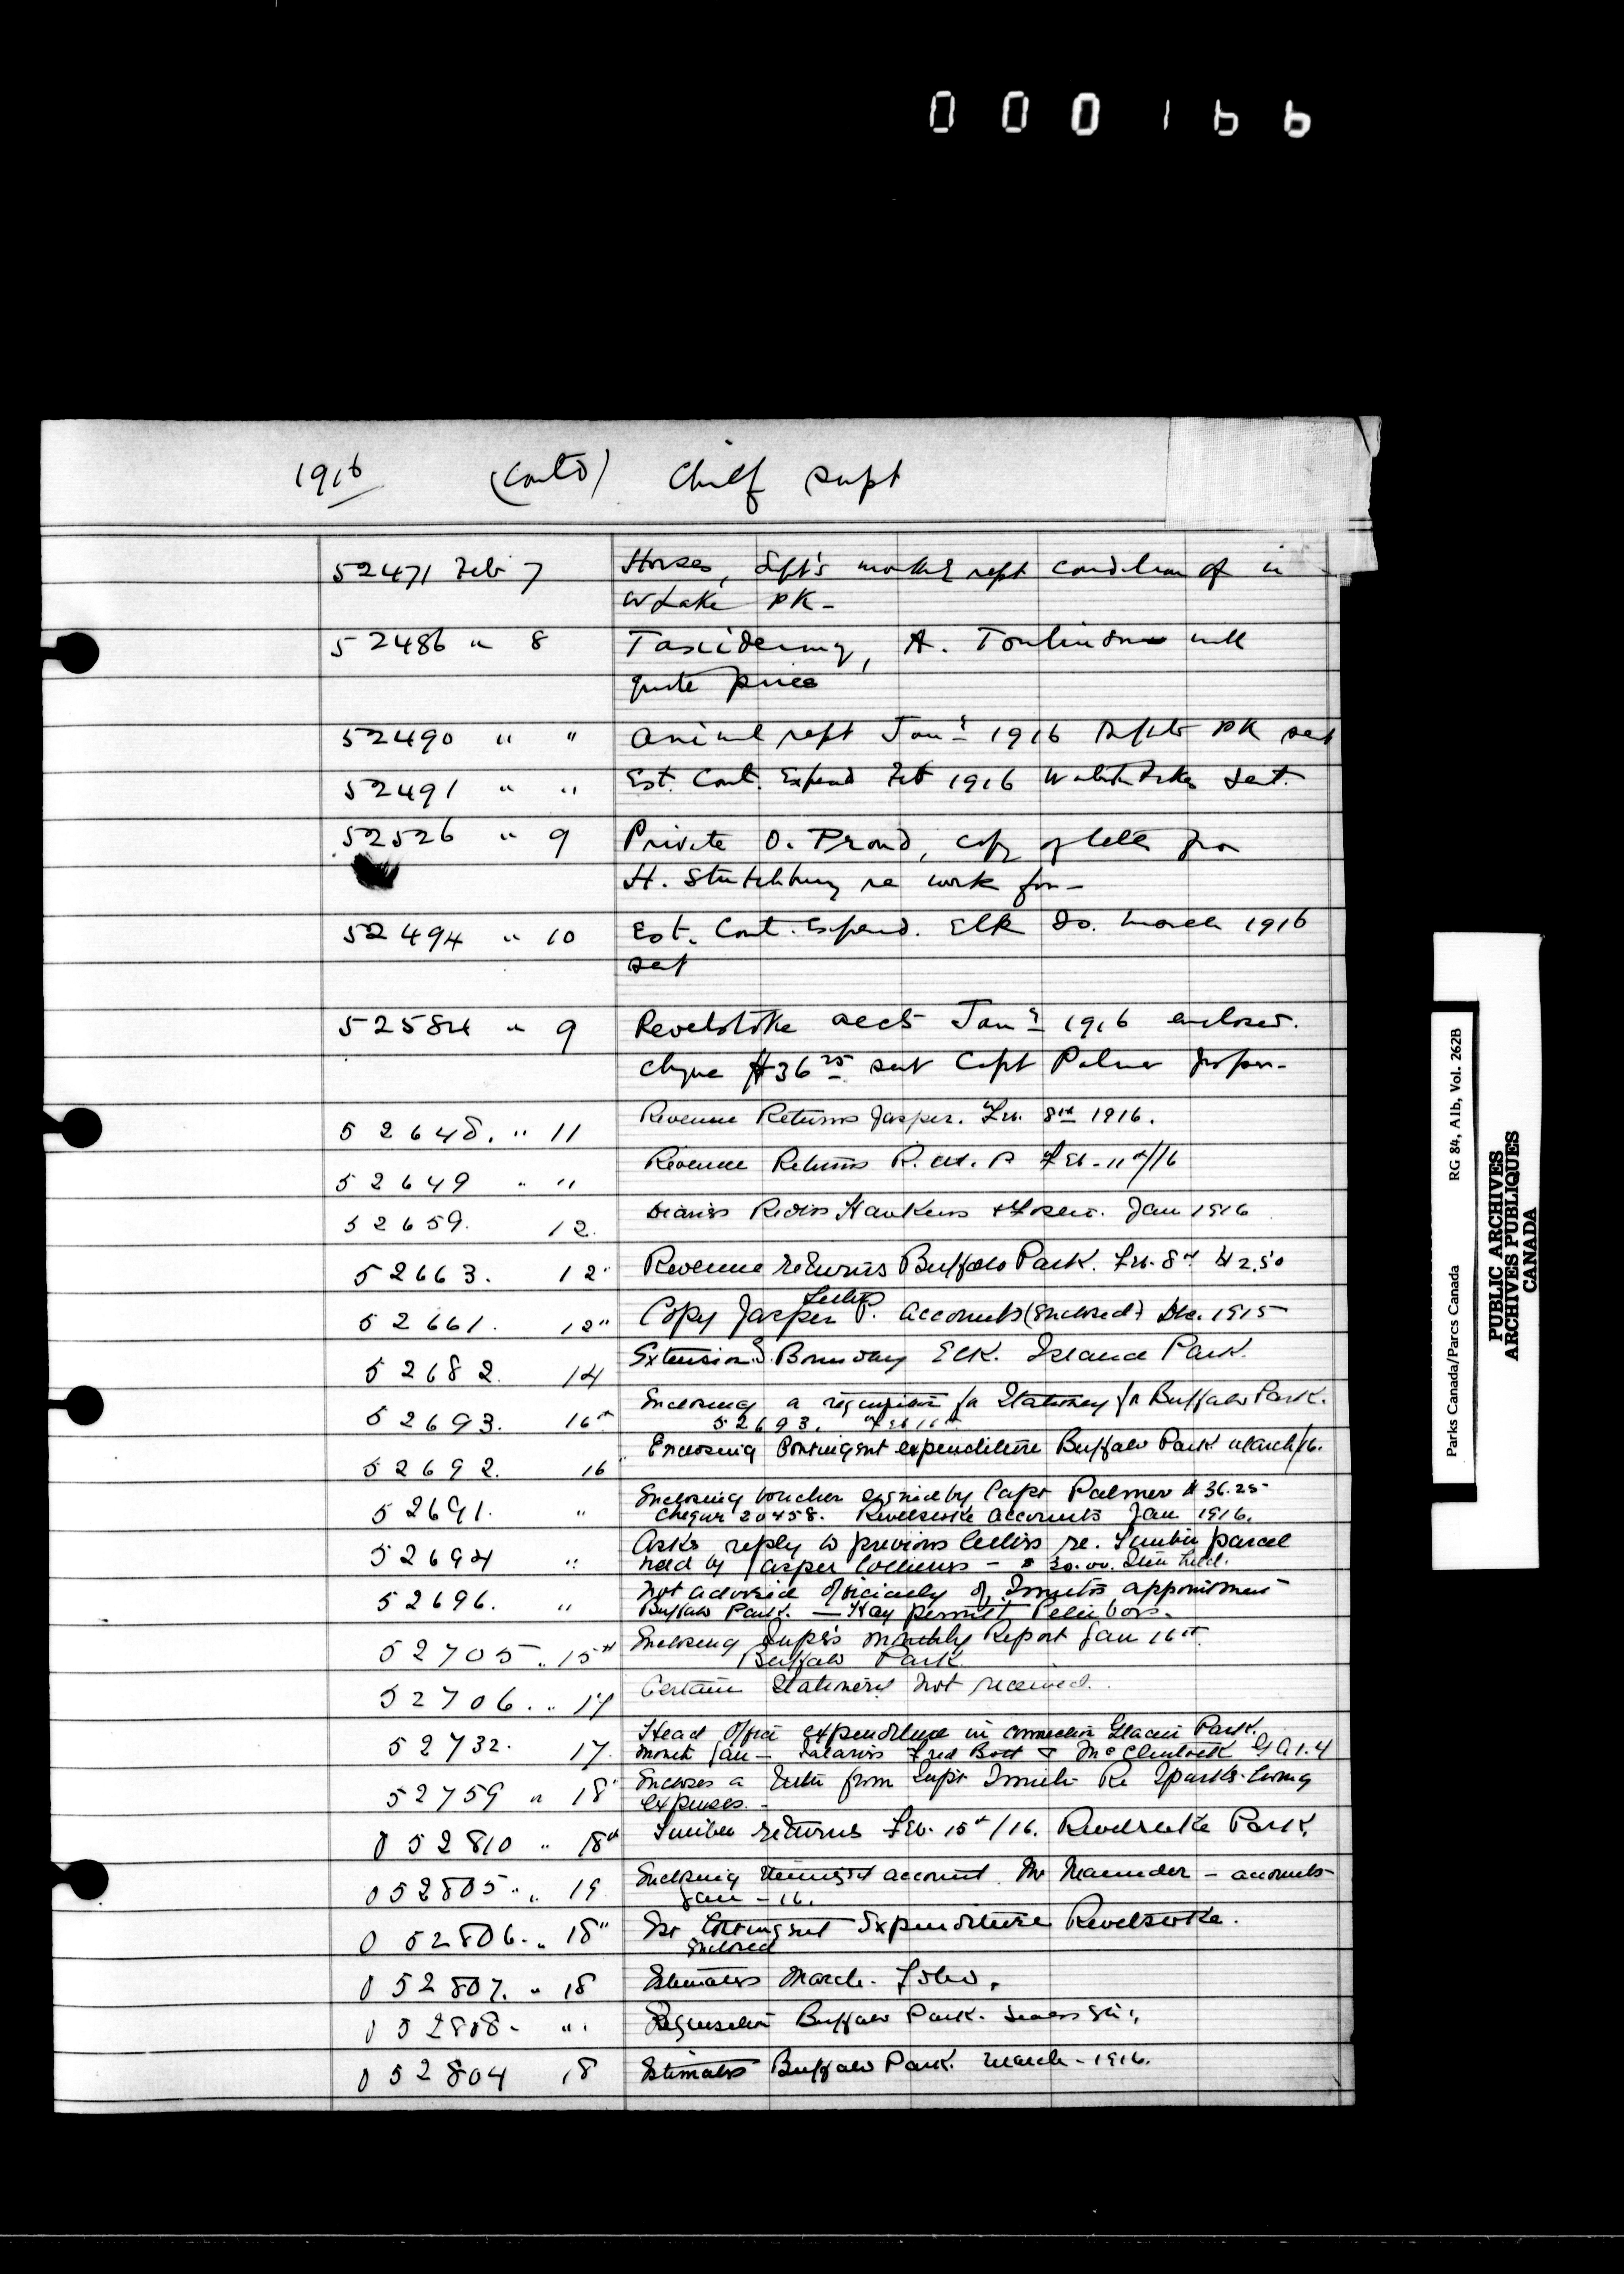 000166
1916 (Contd) Chief Supt
52471 Feb 7 Horses, rept condition of in
W Lake PK -
52486 " 8 Taxidermy, A. Tomlinson will
quote price
52490 " " Animal rept Jany 1916 PK sent
52491 " " Est. Cont. Expend Feb 1916 sent.
52526 " 9 Private O. Proud, copy of letter from
H. Stutchbury re work for -
52494 " 10 Est. Cont. Expend. Elk Is. March 1916
sent
52584 " 9 Revelstoke accts Jany 1916 enclosed.
cheque $36 25 sent Capt Palmer
52648. " 11 Revenue Returns Jasper. Feb. 8th 1916.
52649 " " Revenue Returns R. Mt. P Feb. 11th/16
52659. 12. Diaries Hawkins Jan 1916
52663. 12" Revenue returns Buffalo Park. Feb. 8th $2.50
Letter
52661. 12" Copy Jasper P. accounts (enclosed) Dec. 1915
52682. 14 Extension S. Boundary Elk. Island Park.
52693. 16th Enclosing a requisition for Stationery for Buffalo Park.
52693. Feb 16th
52692. 16 Enclosing Contingent expenditure Buffalo Park March/16.
52691. " Enclosing voucher signed by Capt Palmer $36.25
Cheque 20458. Revelstoke accounts Jan 1916.
52694 " Asks reply to previous letters re. Timber parcel
held by Jasper Collieries - $ 30.00. Still held.
52696. " Not advised officially of appointment
Buffalo Park. - Hay permit
52705 " 15th Enclosing Supt's monthly Report Jan 16th.
Buffalo Park.
52706 " 17 Certain Stationery not received.
52732. 17. Head Office expenditure in connection Glacier Park.
Month Jan - Salaries Fred Bott & McClintock GA1.4
52759 " 18" Encloses a letter from Supt Smith Re Sparks living
expenses. -
052810 " 18th Timber returns Feb. 15th/16. Revelstoke Park.
052805 " 19 Enclosing account. Mr Maunder - accounts
Jan - 16.
052806. " 18" Est Contingent Expenditure Revelstoke.
enclosed
052807. " 18 Estimates March.
052808 - " Requisition Buffalo Park.
052804 18 Estimates Buffalo Park. March - 1916.
Parks Canada/Parcs Canada RG 84, A1b, Vol. 262B
PUBLIC ARCHIVES
ARCHIVES PUBLIQUES
CANADA